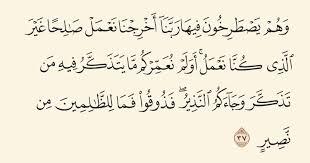 وَهُمْ يَصْطَرِخُونَ فِيهَا رَبَّنَآ أَخْرِجْنَا نَعْمَلْ صَٰلِحًا غَيْرَ
ٱلَّذِى كُنَّا نَعْمَلُ ۚ أَوَلَمْ نُعَمِّرْكُم مَّا يَتَذَكَّرُ فِيهِ مَن
تَذَكَّرَ وَجَآءَكُمُ ٱلنَّذِيرُ ۖ فَذُوقُوا۟ فَمَا لِلظَّٰلِمِينَ مِن
نَّصِيرٍ ٣٧